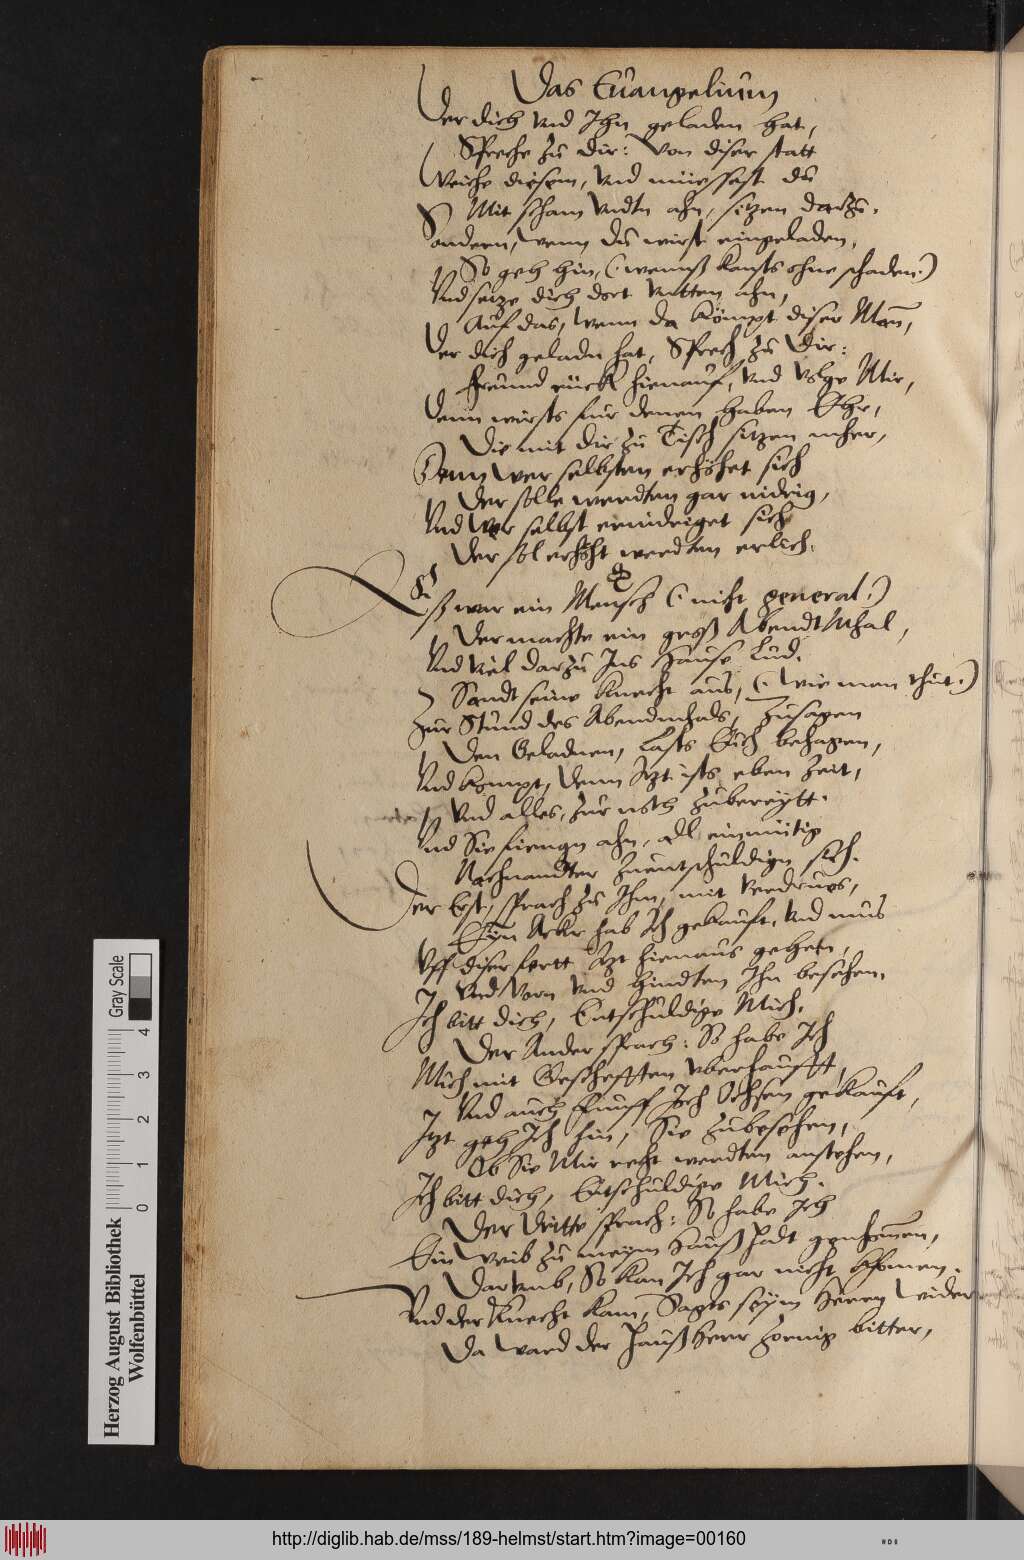 Das Euangelium
Der dich vnd Ihn geladen hat,
Spreche zu dir: Von diser statt
Weiche diesem, vnd müessest du
Mit scham vndtn ahn, sitzen darzu.
Sondern, wenn du wirst eingeladen,
So geh hin, (: wennß kansts ohne schaden :)
Vnd setze dich dort vntten ahn,
Auf das, wenn da kömpt diser Man,
Der dich geladn hat, Sprech zu Dir:
Freund rück hienauf, vnd volge Mir,
Denn wirsts für denen haben Ehr,
Die mit dir zu Tisch sitzen mher,
Denn wer selbsten erhöhet sich
Der solle werdten gar nidrig,
Vnd wer selbst ernidriget sich
Der sol erhöht werdten erlich.
Eß war ein Mensch (: nicht general :)
Der machte ein groß Abendt Mhal,
Vnd viel darzu Ins Hause Lud.
Sandt seine Knecht aus, (: wie man thut :)
Zur Stund des Abendmhals, Zusagen
Den Geladnen, Lasts Euch behagen,
Vnd kompt, denn Itzt ists eben Zeit,
Vnd alles, zubereytt.
Vnd Sie fiengn ahn, all einmütig
Nachnandter Zuentschuldign sich.
Der Erst, sprach zu Ihm, mit verdrus,
Eyn Ackr hab Ich gekauft, vnd mus
Vff diser fartt Itzt hienaus gehen,
Vnd vorn vnd hindten Ihn besehen.
Ich bitt dich, Entschuldige Mich.
Der Ander sprach: So habe Ich
Mich mit Geschefften vberhaufft,
Vnd auch Funff Joch Ochsen gekauft,
Itzt geh Ich hin, Sie zubesehen,
Ob Sie Mir recht werdten anstehen,
Ich bitt dich, Entschuldige Mich.
Der Dritte sprach: So habe Ich
Ein Weib zu meym Hauß Itzdt genommen,
Darumb, So kan Ich gar nicht khomen.
Vnd der Knecht kam, Sagts seym Herrn wider
Da ward der Haußherr zornig bitter,
Herzog August Bibliothek
Wolfenbüttel
0 1 2 3 4
Gray Scale
http://diglib.hab.de/mss/189-helmst/start.htm?image=00160